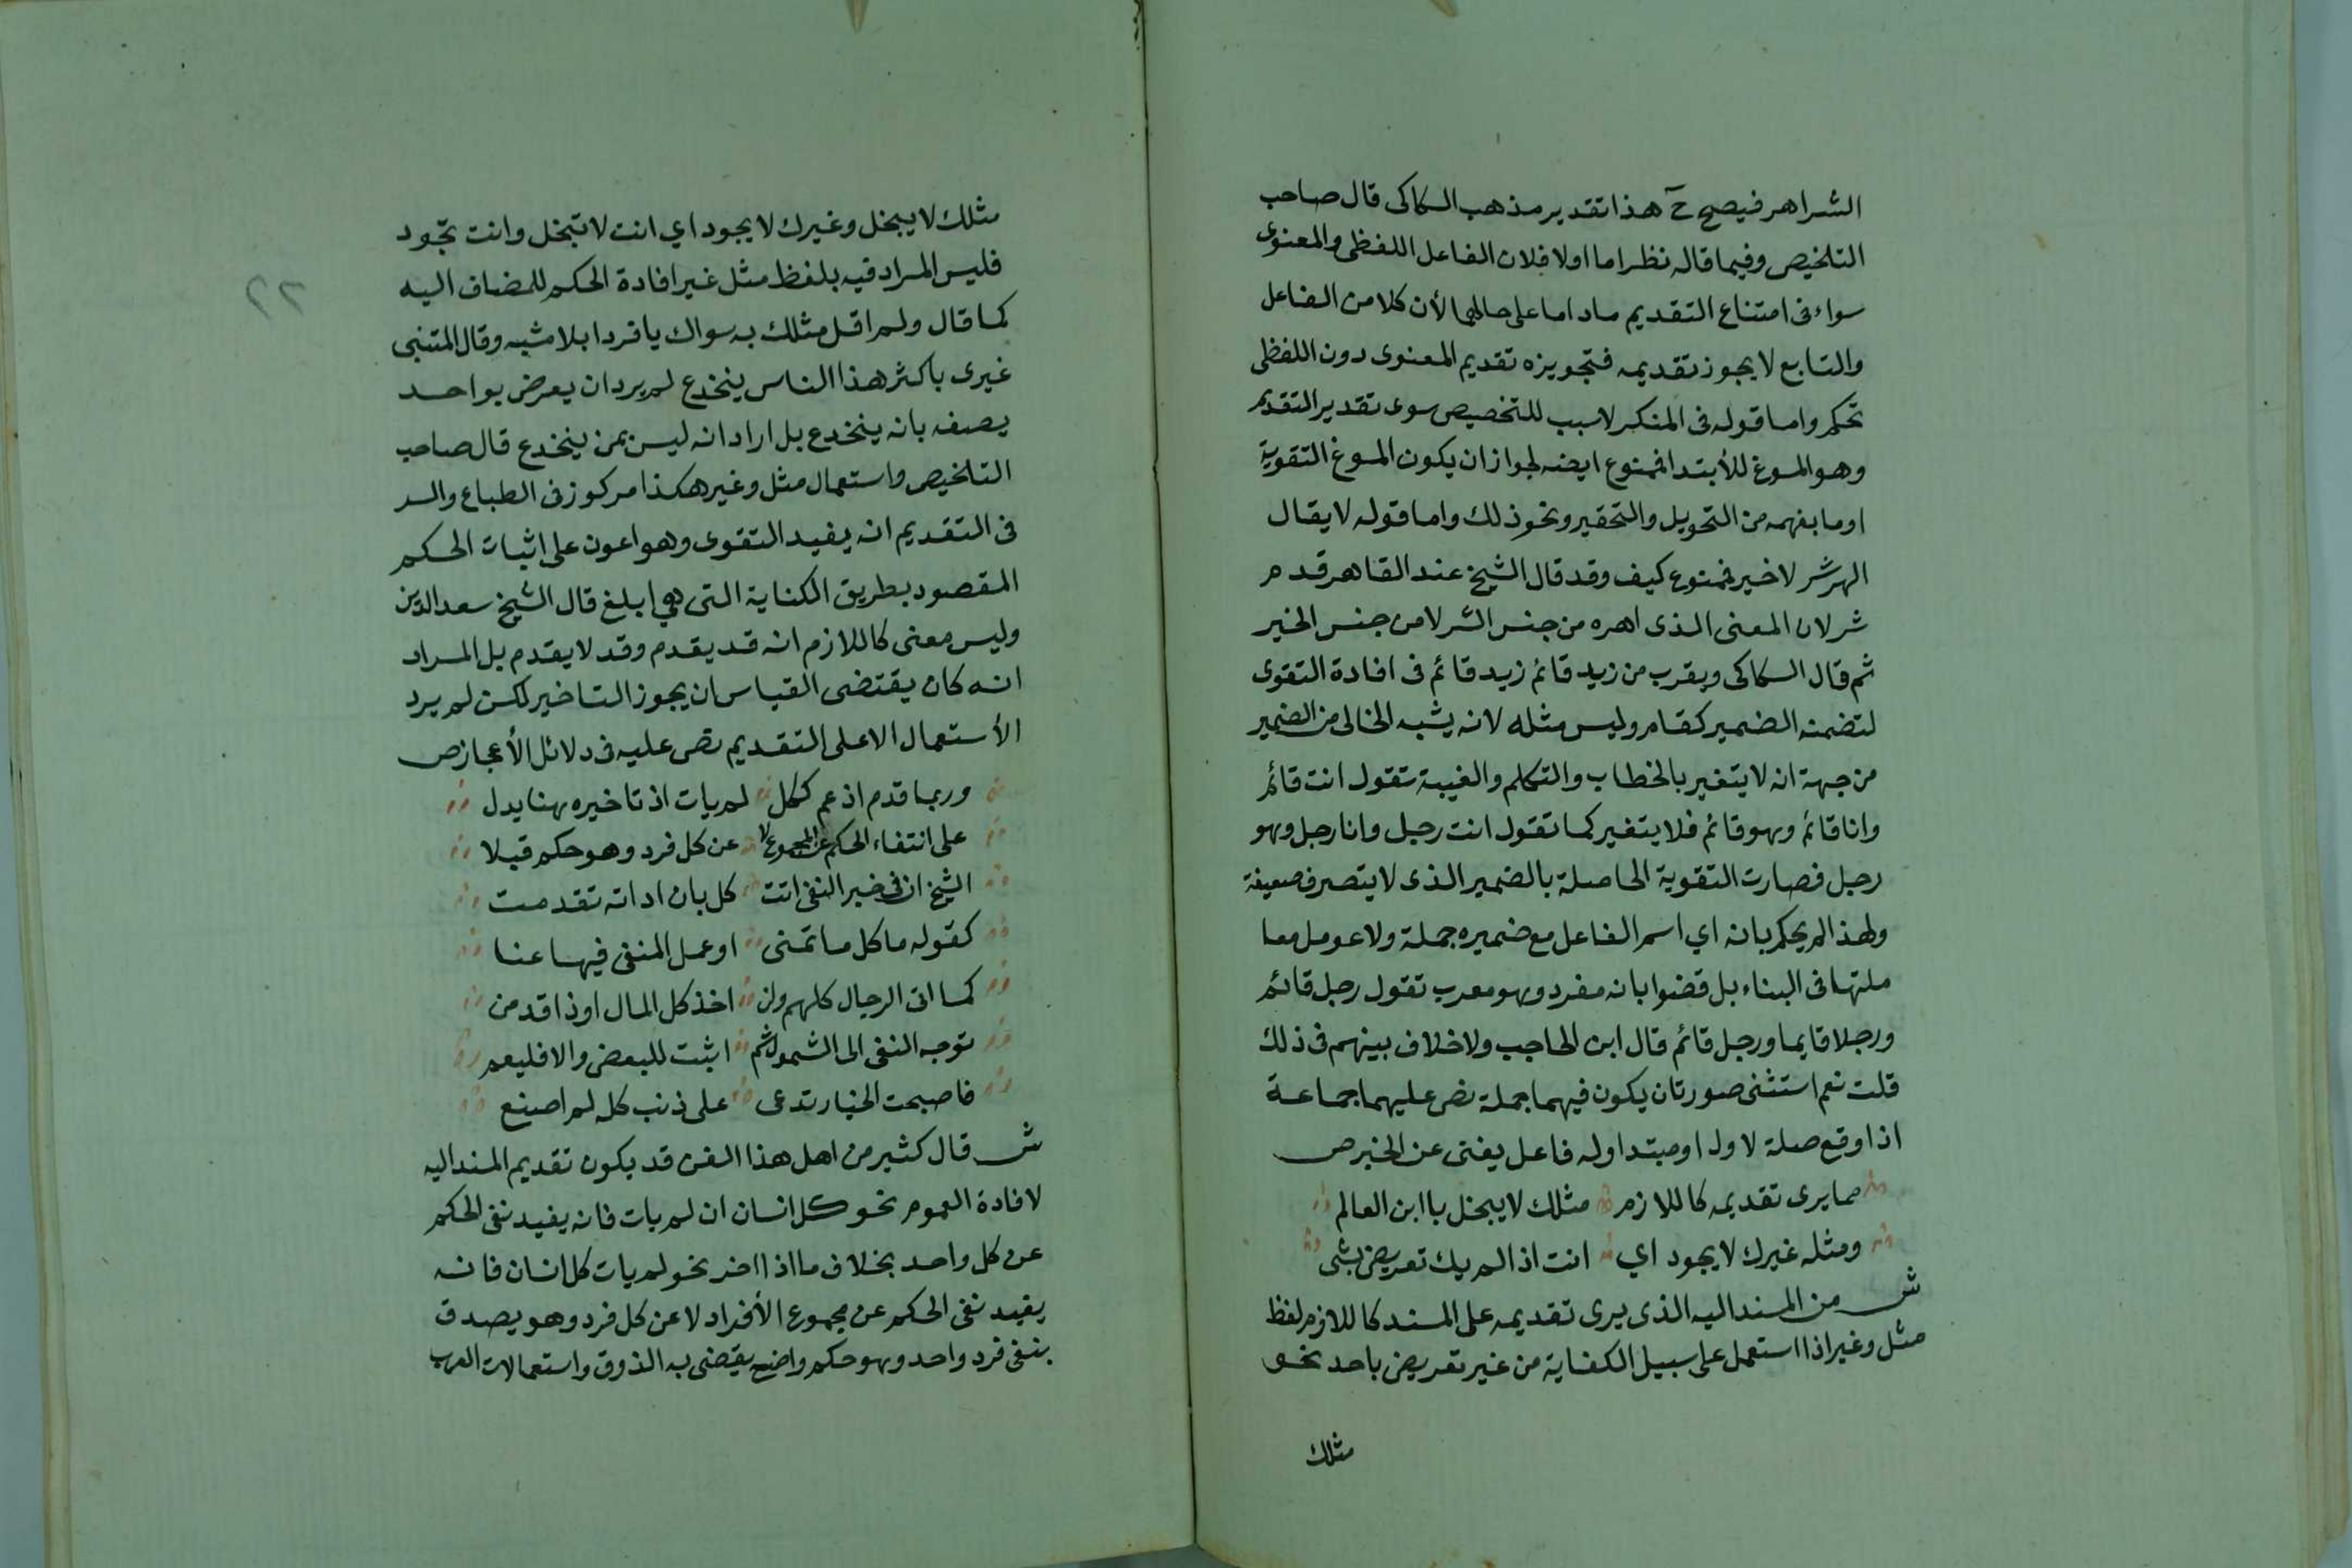 الشراهر فيصح ح هذا تقدير مذهب السكاكى قال صاحب
التلخيص وفيما قاله نظر اما اولا فلان الفاعل اللفظى والمعنوى
سواء فى امتناع التقديم ماداما على حالهما لأن كلا من الفاعل
والتابع لا يجوز تقديمه فتجويزه تقديم المعنوى دون اللفظى
تحكم واما قوله فى المنكر لا سبب للتخصيص سوى تقدير التقديم
وهو المسوغ للأبتدا فممنوع ايضه لجواز ان يكون المسوغ التقوية
او ما بفهمه من التحويل والتحقير ونحو ذلك واما قوله لا يقال
الهر شر لا خير فممنوع كيف وقد قال الشيخ عند القاهر قدم
شر لان المعنى الذى اهره من جنس الشر لا من جنس الخير
ثم قال السكاكى ويقرب من زيد قائم زيد قائم فى افادة التقوى
لتضمنه الضمير كقام وليس مثله لانه يشبه الخالى من الضمير
من جهة انه لا يتغير بالخطاب والتكلم والغيبة تقول انت قائم
وانا قائم وهو قائم فلا يتغير كما تقول انت رجل وانا رجل وهو
رجل فصارت التقوية الحاصلة بالضمير الذى لا يتصرف ضعيفة
ولهذا لم يحكم بانه اي اسم الفاعل مع ضميره جملة ولا عومل معا
ملتها فى البناء بل قضوا بانه مفرد وهو معرب تقول رجل قائم
ورجلا قايما ورجل قائم قال ابن الحاجب ولا خلاف بينهم فى ذلك
قلت نعم استثنى صورتان يكون فيهما جملة نص عليهما جماعة
اذا وقع صلة لاول او مبتدا وله فاعل يغنى عن الخبر ص
مما يرى تقديمه كاللازم مثلك لا يبخل يا ابن العالم
ومثله غيرك لا يجود اي انت اذا لم يك تعريض بشى
ش من المسند اليه الذى يرى تقديمه على المسند كاللازم لفظ
مثل وغير اذا استعمل على سبيل الكناية من غير تعريض باحد نحو
مثلك
مثلك لا يبخل وغيرك لا يجود اي انت لا تبخل وانت تجود
فليس المراد فيه بلفظ مثل غير افادة الحكم للمضاف اليه
كما قال ولم اقل مثلك به سواك يا فردا بلا مشبه وقال المتنبى
غيرى باكثر هذا الناس ينخدع لم يرد ان يعرض بواحد
يصفه بانه ينخدع بل اراد انه ليس بمن ينخدع قال صاحب
التلخيص واستعمال مثل وغير هكذا مركوز فى الطباع والسر
فى التقديم انه يفيد التقوى وهو اعون على اثبات الحكم
المقصود بطريق الكناية التى هي ابلغ قال الشيخ سعد الدين
وليس معنى كاللازم انه قد يقدم وقد لا يقدم بل المراد
انه كان يقتضى القياس ان يجوز التاخير لكن لم يرد
الأستعمال الا على التقديم نص عليه فى دلائل الأعجاز ص
وربما قدم اذ عم ككل لم يات اذ تاخيره هنا يدل
على انتفاء الحكم عن المجموع لا عن كل فرد وهو حكم قبلا
الشيخ ان فى خبر النفى اتت كل بان اداته تقدمت
كقوله ما كل ما تمنى او عمل المنفى فيها عنا
كما اتى الرجال كلهم ولن اخذ كل المال او ذا قدمن
توجه النفى الى الشمول ثم اثبت للبعض والا فليعم
فاصبحت الخيار تدعى على ذنب كله لم اصنع
ش قال كثير من اهل هذا الفن قد يكون تقديم المسند اليه
لافادة العموم نحو كل انسان ان لم يات فانه يفيد نفى الحكم
عن كل واحد بخلاف ما اذا اخر نحو لم يات كل انسان فانه
يفيد نفى الحكم عن مجموع الأفراد لا عن كل فرد وهو يصدق
بنفى فرد واحد وهو حكم واضح يقضى به الذوق واستعمالات العرب